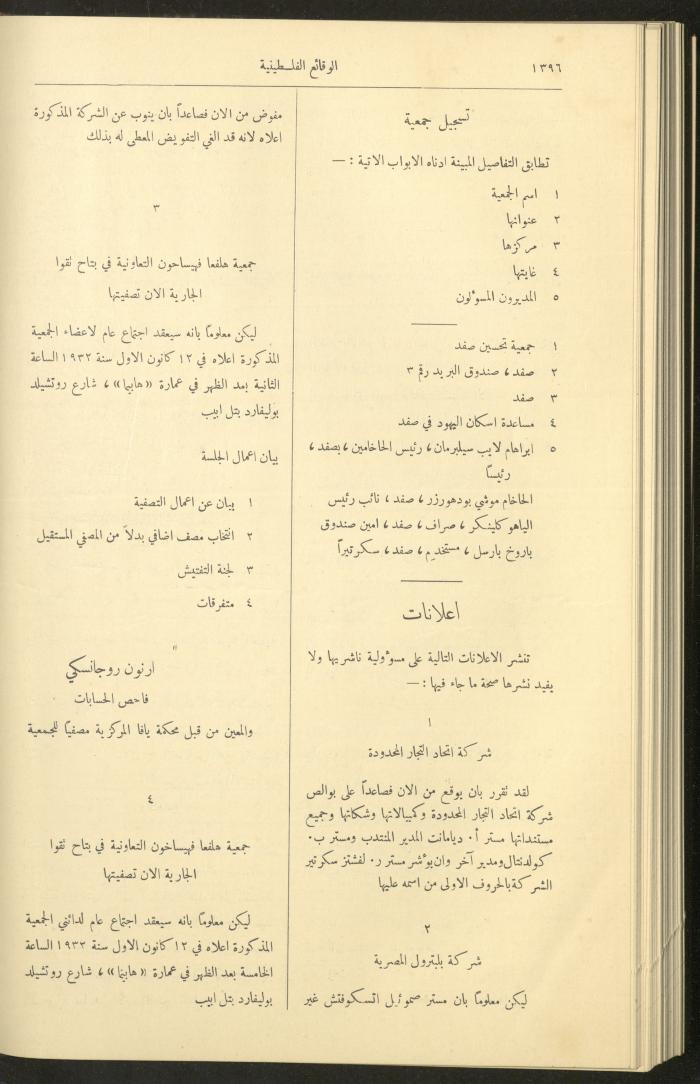 ١٣٩٦
الوقائع الفلسطينية
تسجيل جمعية
تطابق التفاصيل المبينة ادناه الابواب الاتية : —
١ اسم الجمعية
٢ عنوانها
٣ مركزها
٤ غايتها
٥ المديرون المسوٴلون
١ جمعية تحسين صفد
٢ صفد ، صندوق البريد رقم ٣
٣ صفد
٤ مساعدة اسكان اليهود في صفد
٥ ابراهام لايب سيلبرمان ، رئيس الحاخامين ، بصفد ،
رئيساً
الحاخام موشي بودهورزر ، صفد ، نائب رئيس
الياهو كلينكر ، صراف ، صفد ، امين صندوق
باروخ بارسل ، مستخدم ، صفد ، سكرتيراً
اعلانات
تنشر الاعلانات التالية على مسوٴولية ناشريها ولا
يفيد نشرها صحة ما جاء فيها : —
١
شركة اتحاد التجار المحدودة
لقد نقرر بان يوقع من الان فصاعداً على بوالص
شركة اتحاد التجار المحدودة وكمبيالاتها وشكاتها وجميع
مستنداتها مستر أ. ديامانت المدير المنتدب ومستر ب.
كولدنتال ومدير آخر وان يوٴشر مستر ر. لفشتز سكرتير
الشركة بالحروف الاولى من اسمه عليها
٢
شركة بلبترول المصرية
ليكن معلوماً بان مستر صموئيل اتسكوفتش غير
مفوض من الان فصاعداً بان ينوب عن الشركة المذكورة
اعلاه لانه قد الغي التفويض المعطى له بذلك
٣
جمعية هلفعا فهيساحون التعاونية في بتاح نقوا
الجارية الان تصفيتها
ليكن معلوماً بانه سيعقد اجتماع عام لاعضاء الجمعية
المذكورة اعلاه في ١٢ كانون الاول سنة ١٩٣٢ الساعة
الثانية بعد الظهر في عمارة «هابيما» ، شارع روتشيلد
بوليفارد بتل ابيب
بيان اعمال الجلسة
١ بيان عن اعمال التصفية
٢ انتخاب مصف اضافي بدلاً من المصفي المستقيل
٣ لجنة التفتيش
٤ متفرقات
ارنون روجانسكي
فاحص الحسابات
والمعين من قبل محكمة يافا المركزية مصفياً للجمعية
٤
جمعية هلفعا فهيساخون التعاونية في بتاح نقوا
الجارية الان تصفيتها
ليكن معلوماً بانه سيعقد اجتماع عام لدائني الجمعية
المذكورة اعلاه في ١٢ كانون الاول سنة ١٩٣٢ الساعة
الخامسة بعد الظهر في عمارة «هابيما» ، شارع روتشيلد
بوليفارد بتل ابيب